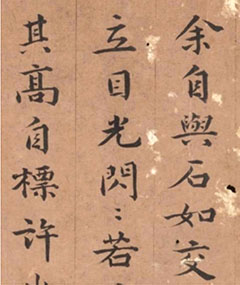 余自與石如交
立目光閃〻若
其高自標許